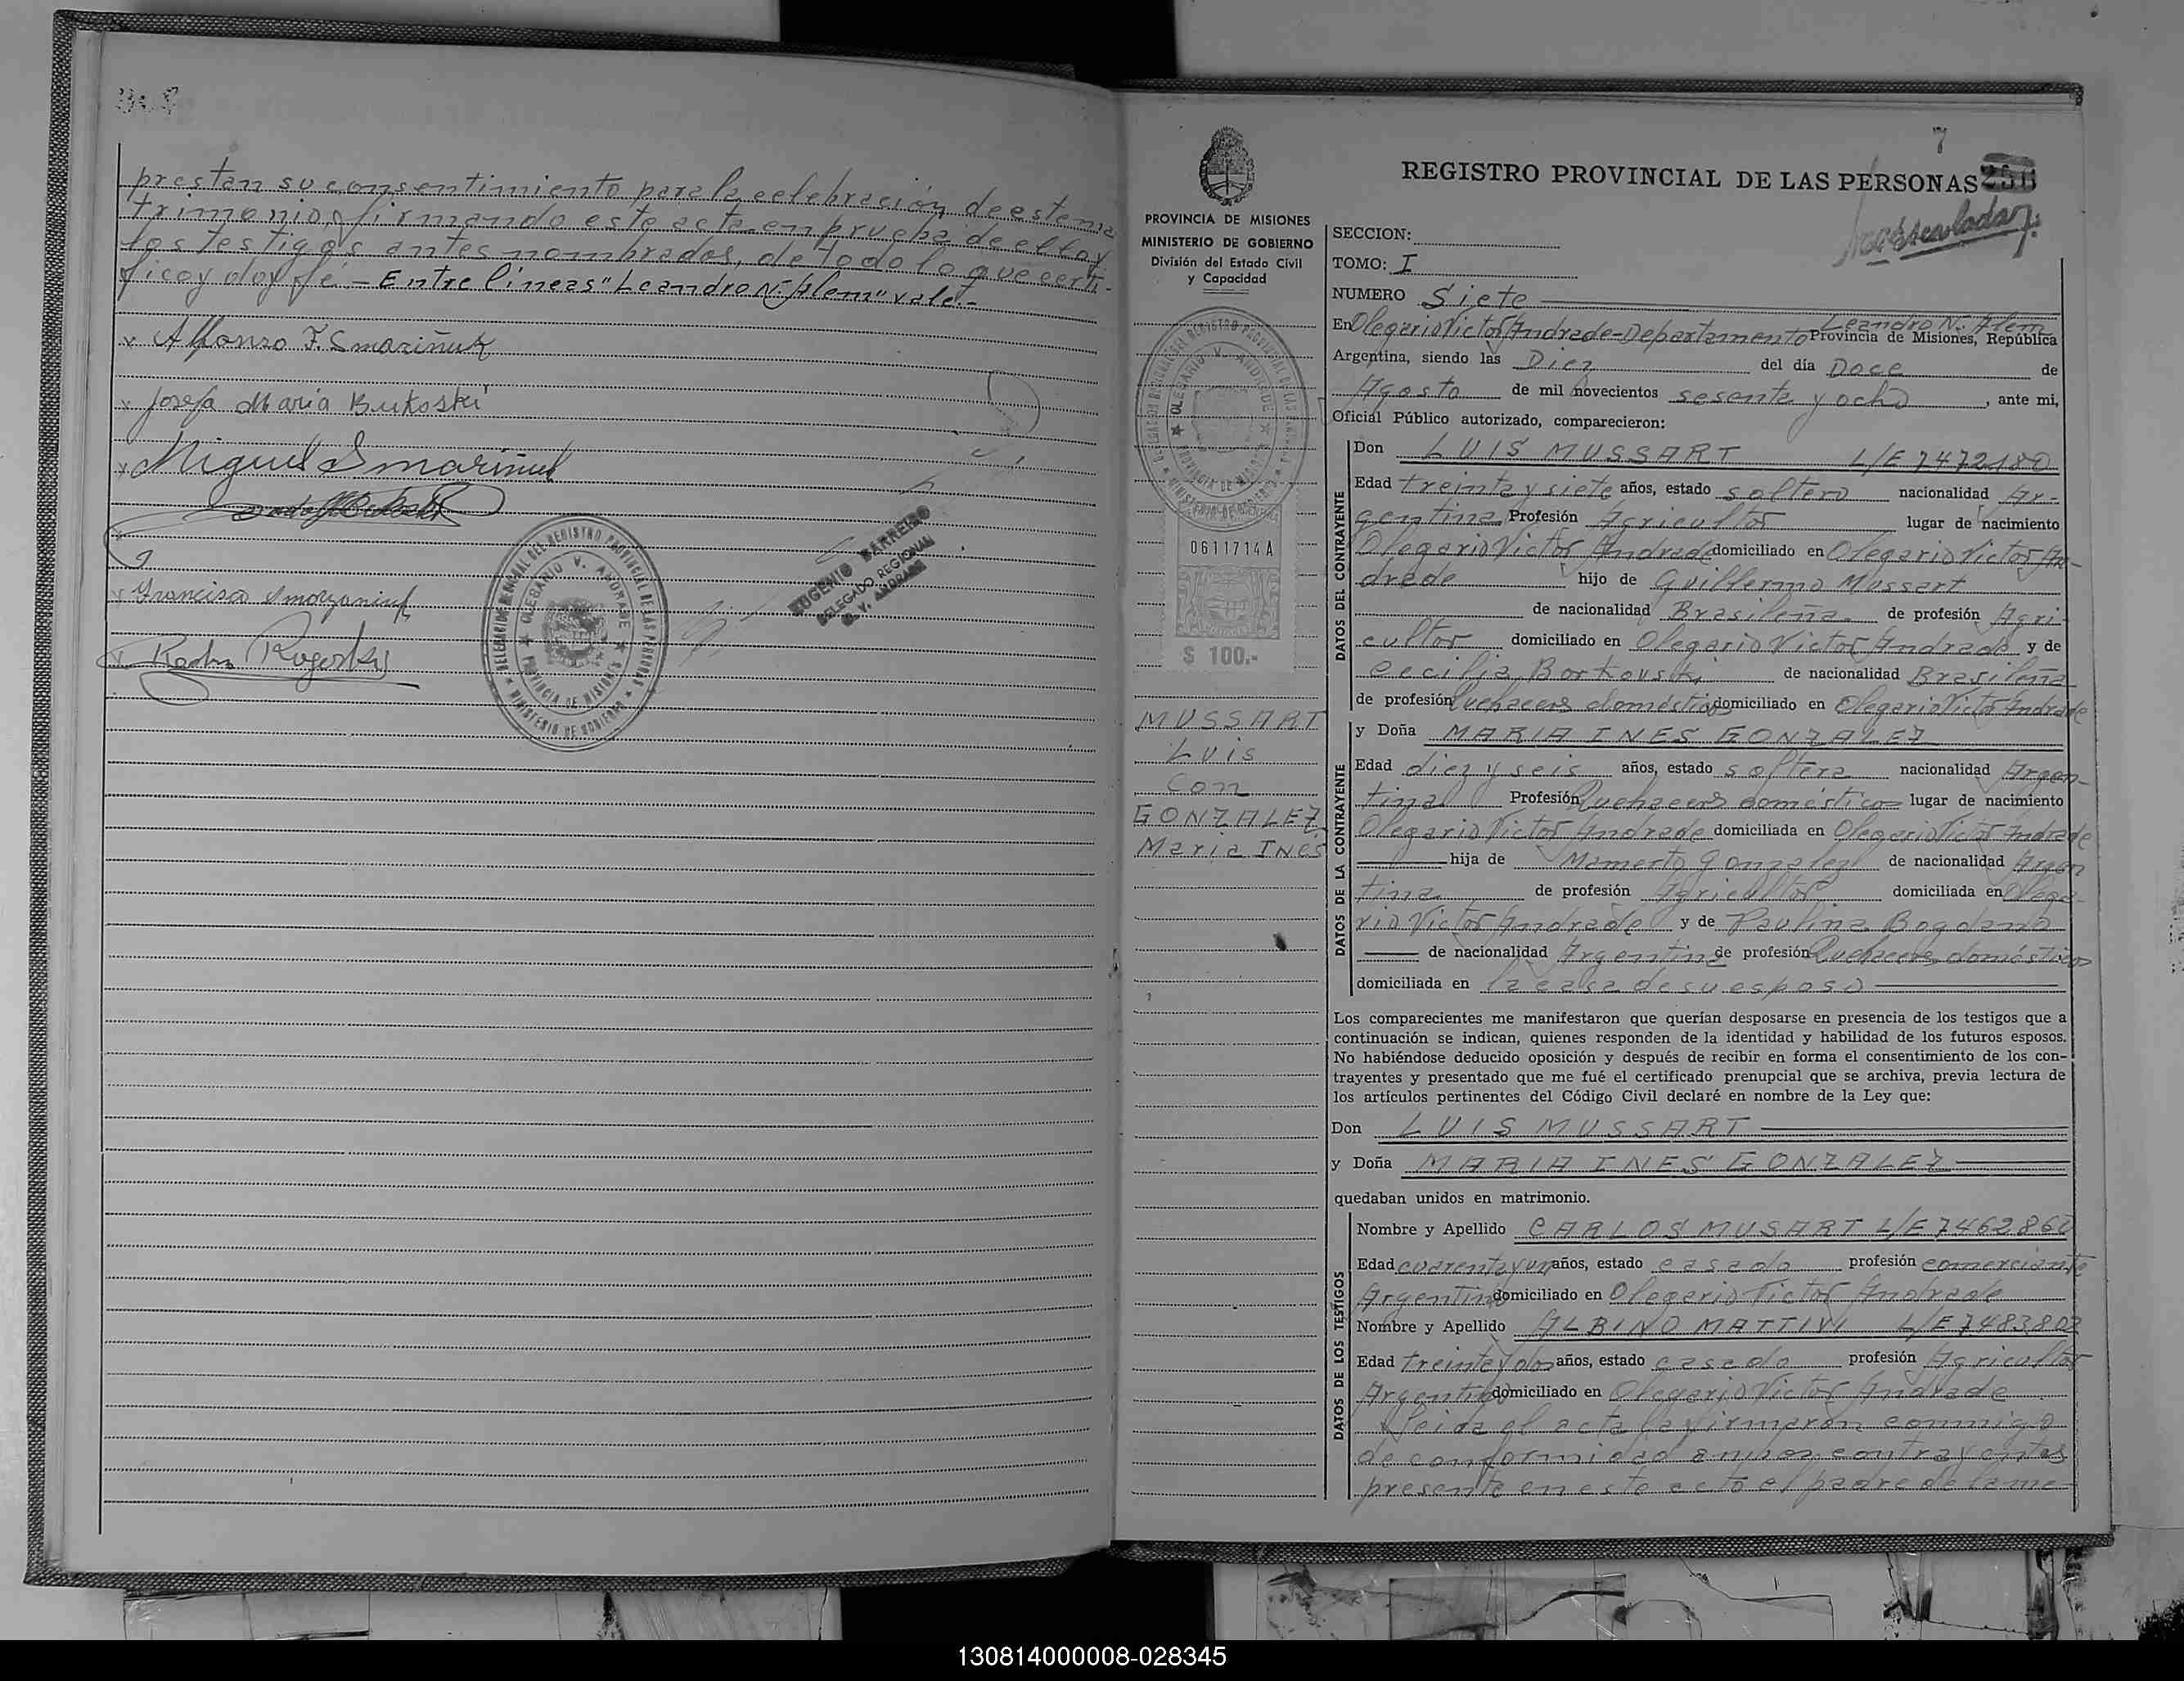 prestan su consentimiento para la celebración de este ma
trimonio, firmando este acta en prueba de ello y
los testigos antes nombrados, de todo lo que certi-
fico y doy fé.- Entre líneas "Leandro N. Alem" vale.-
x Alfonso F. Smariñuk
x Josefa Maria Bukoski
x Miguel Smariñuk
x Francisco Smozaniuk
x Pedro Rogoski
DELEGACION REGIONAL DEL REGISTRO PROVINCIAL DE LAS PERSONAS
OLEGARIO V. ANDRADE
PROVINCIA DE MISIONES
MINISTERIO DE GOBIERNO
EUGENIO BARREIRO
DELEGADO REGIONAL
O. V. ANDRADE
7
REGISTRO PROVINCIAL DE LAS PERSONAS
PROVINCIA DE MISIONES
MINISTERIO DE GOBIERNO
División del Estado Civil
y Capacidad
0611714A
$ 100.-
MUSSART
Luis
con
GONZALEZ
Maria INES
SECCION:
TOMO: I
NUMERO Siete
Leandro N. Alem
En Olegario Victor Andrade-Departamento Provincia de Misiones, República
Argentina, siendo las Diez del día Doce de
Agosto de mil novecientos sesenta y ocho, ante mi,
Oficial Público autorizado, comparecieron:
DATOS DEL CONTRAYENTE
Don LUIS MUSSART L/E 7472180
Edad treinta y siete años, estado soltero nacionalidad Ar-
gentina Profesión Agricultor lugar de nacimiento
Olegario Victor Andrade domiciliado en Olegario Victor An-
drade hijo de Guillermo Mussart
de nacionalidad Brasileña de profesión Agri-
cultor domiciliado en Olegario Victor Andrade y de
Cecilia Borkouski de nacionalidad Brasileña
de profesión Quehaceres domésticos domiciliado en Olegario Victor Andrade
DATOS DE LA CONTRAYENTE
y Doña MARIA INES GONZALEZ
Edad diez y seis años, estado soltera nacionalidad Argen-
tina Profesión Quehaceres domésticos lugar de nacimiento
Olegario Victor Andrade domiciliada en Olegario Victor Andrade
hija de Mamerto Gonzalez de nacionalidad Argen
tina de profesión Agricultor domiciliada en Olega-
rio Victor Andrade y de Paulina Bogdano
de nacionalidad Argentina de profesión Quehaceres domésticos
domiciliada en la casa de su esposo
Los comparecientes me manifestaron que querían desposarse en presencia de los testigos que a
continuación se indican, quienes responden de la identidad y habilidad de los futuros esposos.
No habiéndose deducido oposición y después de recibir en forma el consentimiento de los con-
trayentes y presentado que me fué el certificado prenupcial que se archiva, previa lectura de
los artículos pertinentes del Código Civil declaré en nombre de la Ley que:
Don LUIS MUSSART
y Doña MARIA INES GONZALEZ
quedaban unidos en matrimonio.
DATOS DE LOS TESTIGOS
Nombre y Apellido CARLOS MUSART L/E 7462860
Edad cuarenta y un años, estado casado profesión comerciante
Argentino domiciliado en Olegario Victor Andrade
Nombre y Apellido ALBINO MATTIVI L/E 7483802
Edad treinta y dos años, estado casado profesión Agricultor
Argentino domiciliado en Olegario Victor Andrade
leida el acta la firmaron conmigo
de conformidad ambos contrayentes
presente en este acto el padre de la me
130814000008-028345